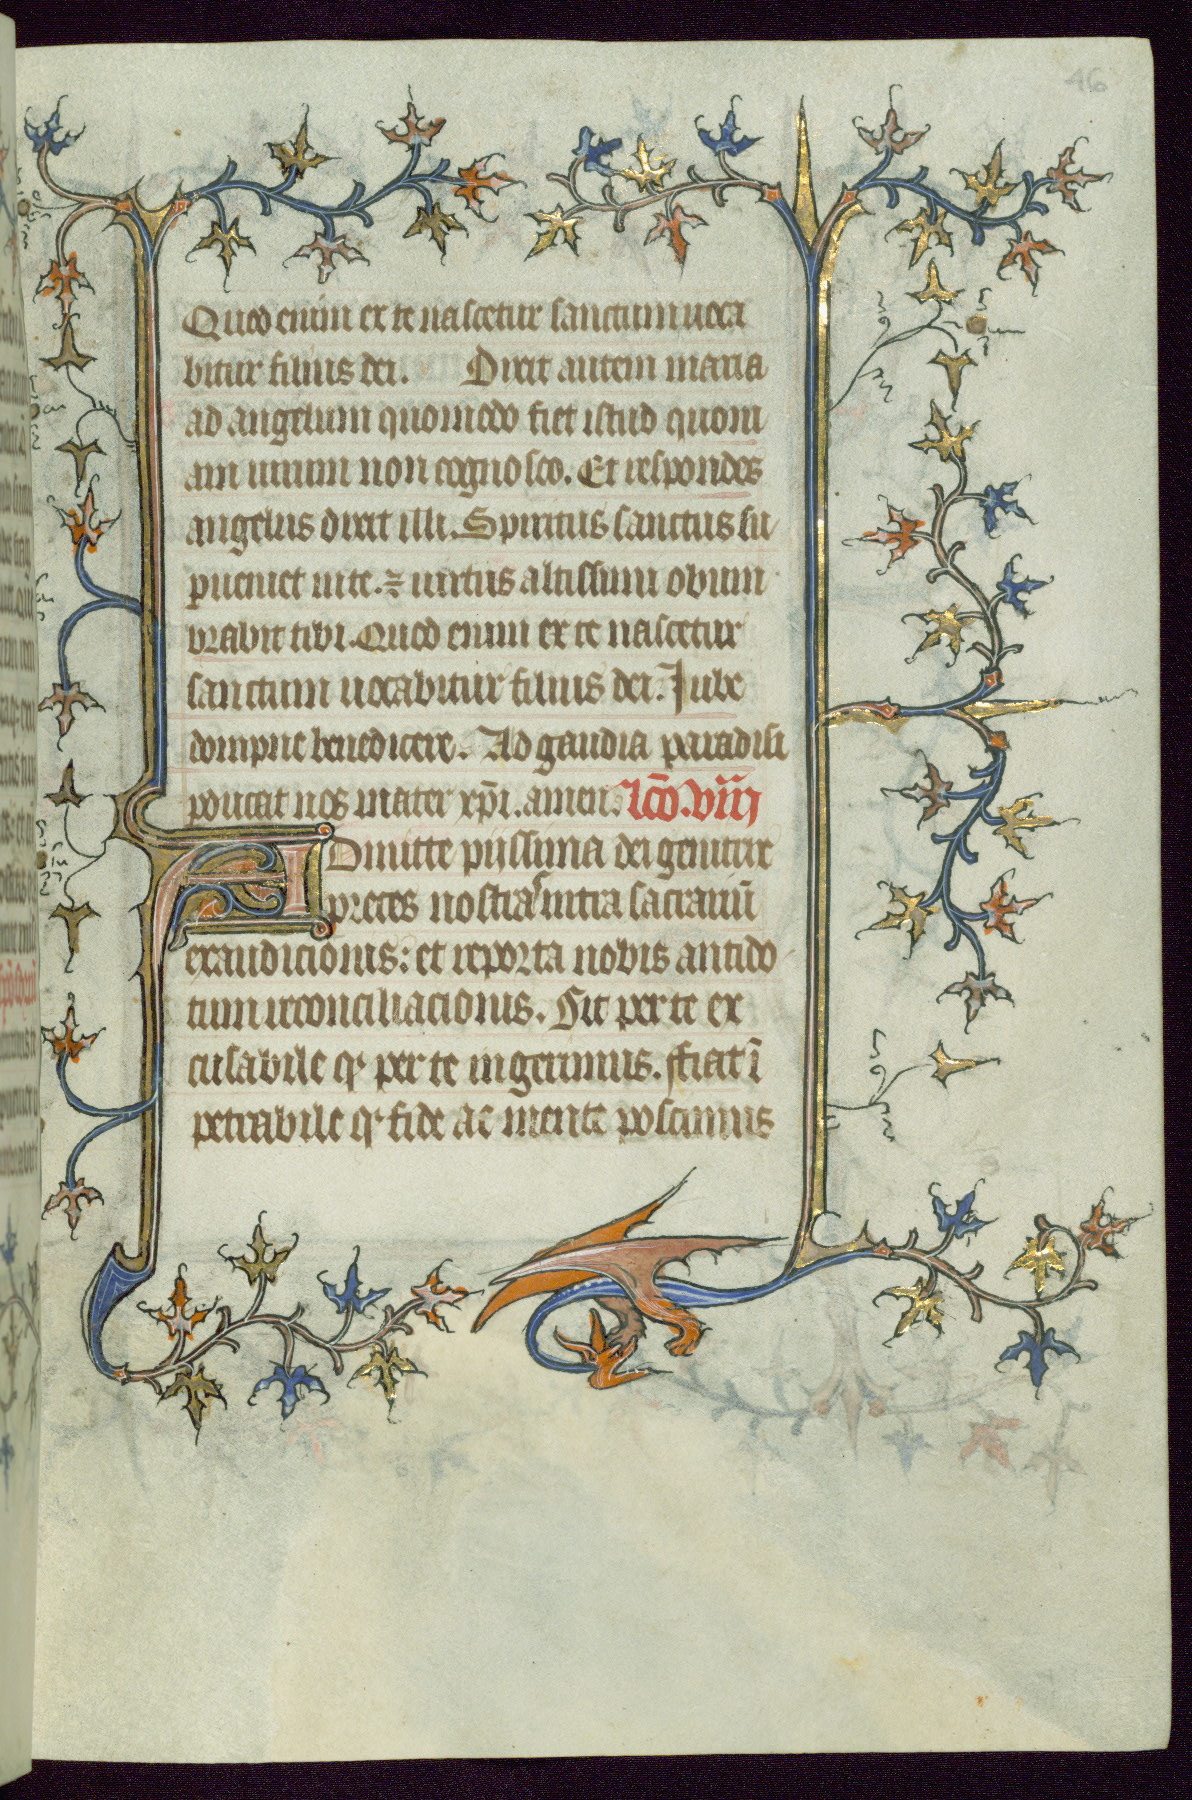 46
Quod enim ex te nascetur sanctum uoca
bitur filius dei. Dixit autem maria
ad angelum quomodo fiet istud quoni
am uirum non cognosco. Et respondēs
angelus dixit illi. Spiritus sanctus su
pueniet in te. ⁊ uirtus altissimi obum
brabit tibi. Quod enim ex te nascetur
sanctum uocabitur filius dei. Jube
dompne benedicere. Ad gaudia paradisi
poucat nos mater xp̄i. amen. lc̄o. viij
Admitte piissima dei genitrix
preces nostras intra sacrariū
exaudicionis: et reporta nobis antido
tum reconciliacionis. Sit per te ex
cusabile q' per te ingerimus. ffiat ī
petrabile q' fide ac mente poscimus